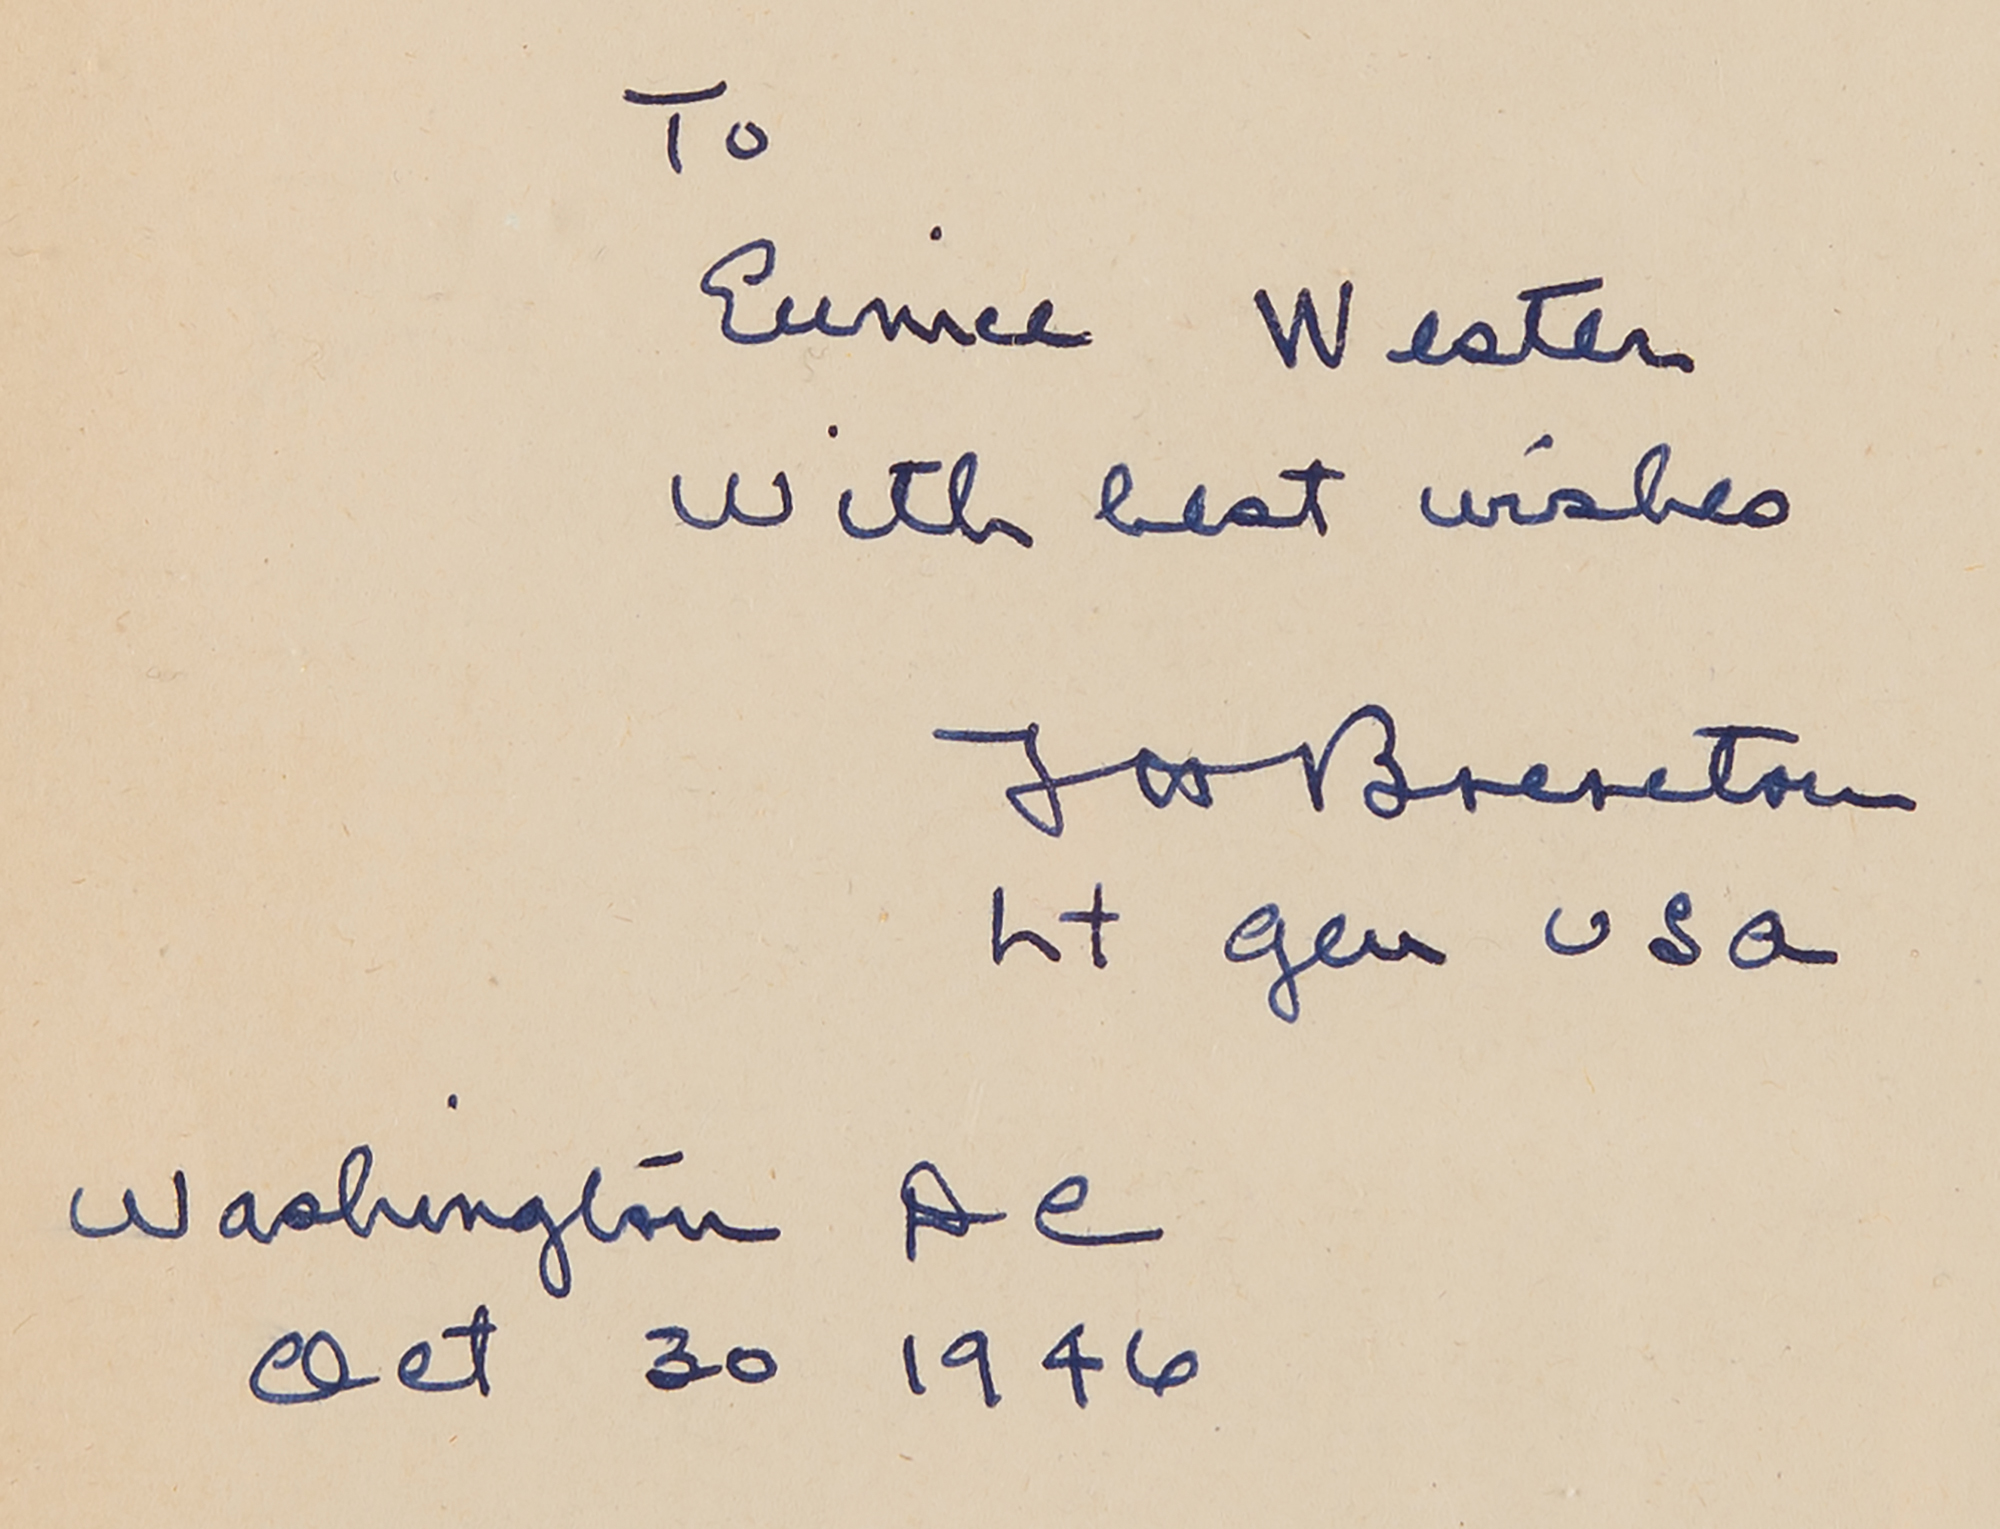 To
Eunice Wester
With best wishes
L H Brereton
Lt Gen USA
Washington DC
Oct 30 1946